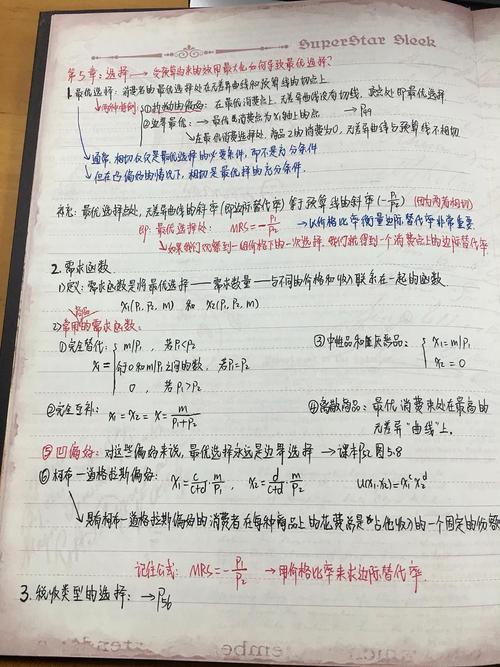 SuperStar Sleek
第5章：选择 → 受预算约束的效用最大化如何导致最优选择？
1. 最优选择：消费者的最优选择处在无差异曲线和预算线的切点上.
→两种特例：①拐折的偏好：在最优消费点上，无差异曲线没有切线，卖点处即最优选择.
②边界最优：→最优点消费点为X轴上的点 → P49
→在最优消费选择处，商品2的消费为0，无差异曲线与预算线不相切
→通常，相切仅仅是最优选择的必要条件，而不是充分条件
→但在凸偏好的情况下，相切是最优择的充分条件.
补充：最优选择点处，无差异曲线的斜率（即边际替代率）等于预算线的斜率(-P₁/P₂)（因为两者相切）
即：最优选择处： MRS=-P₁/P₂ →以价格比率衡量边际替代率非常重要.
→如果我们观察到一组价格下的一次选择，我们就得到一个消费点上的边际替代率.
2. 需求函数
1)定义：需求函数是将最优选择——需求数量——与不同的价格和收入联系在一起的函数.
X₁(P₁, P₂, m) 和 X₂(P₁, P₂, m)
商品
2)常用的需求函数：
①完全替代： X₁= { m/P₁, 若P₁<P₂
介于0和m/P₁之间的数, 若P₁=P₂
0, 若P₁>P₂
③中性品和厌恶品： { X₁=m/P₁
X₂=0
②完全互补： X₁=X₂=X=m/(P₁+P₂)
④离散商品：最优消费束处在最高的
无差异"曲线"上.
⑤凹偏好：对这些偏好来说，最优选择永远是边界选择 →课本P52 图5.8
⑥柯布—道格拉斯偏好： X₁=c/(c+d)·m/P₁, X₂=d/(c+d)·m/P₂ u(X₁,X₂)=X₁ᶜX₂ᵈ
→具有柯布—道格拉斯偏好的消费者在每种商品上的花费总是"占他收入的一个固定的份额
记住公式： MRS=-P₁/P₂ →用价格比率来求边际替代率.
3. 税收类型的选择：→P56